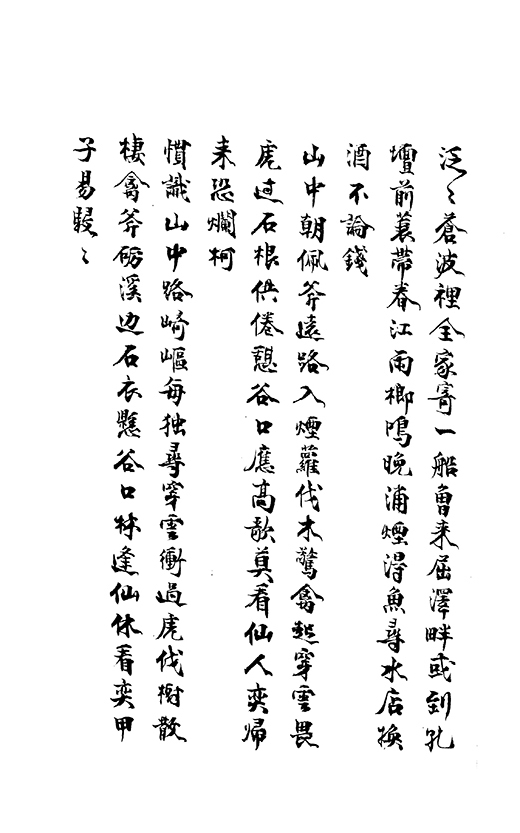 泛〻蒼波裡全家寄一船曾来屈澤畔或到孔
壇前蓑帶春江雨榔鳴晚浦煙得魚尋水店換
酒不論錢
山中朝佩斧遠路入煙蘿伐木驚禽起穿雲畏
虎过石根供倦憩谷口應高歌莫看仙人奕帰
来恐爛柯
慣識山中路崎嶇每独尋穿雲衝過虎伐樹散
棲禽斧砺溪边石衣懸谷口林逢仙休看奕甲
子易駸〻